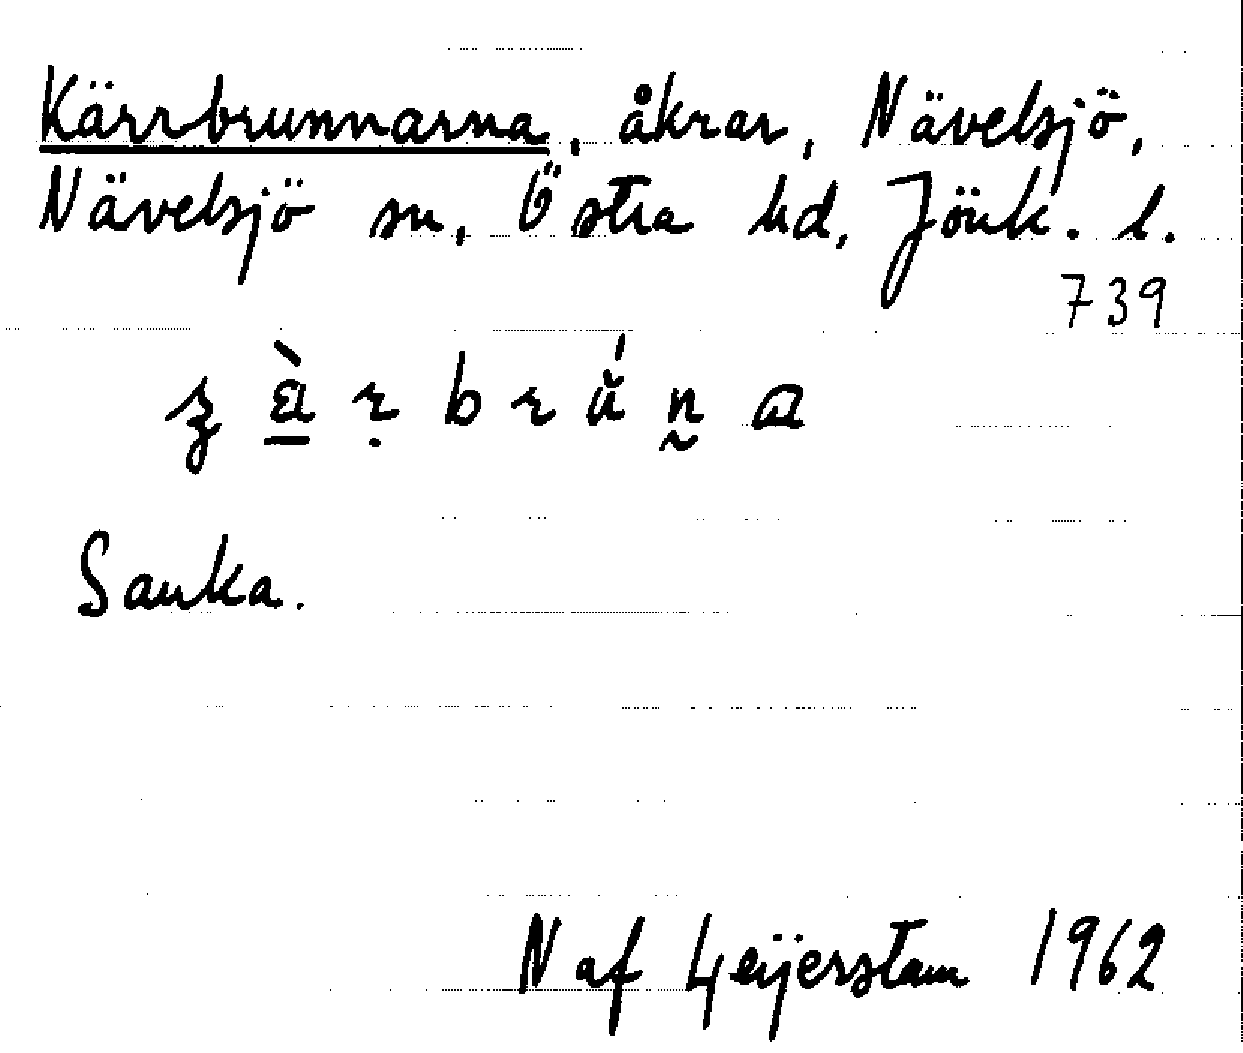 Kärrbrunnarna, åkrar, Nävelsjö,
Nävelsjö sn, Östra hd, Jönk. l.
739
Sanka.
N af Geijerstam 1962